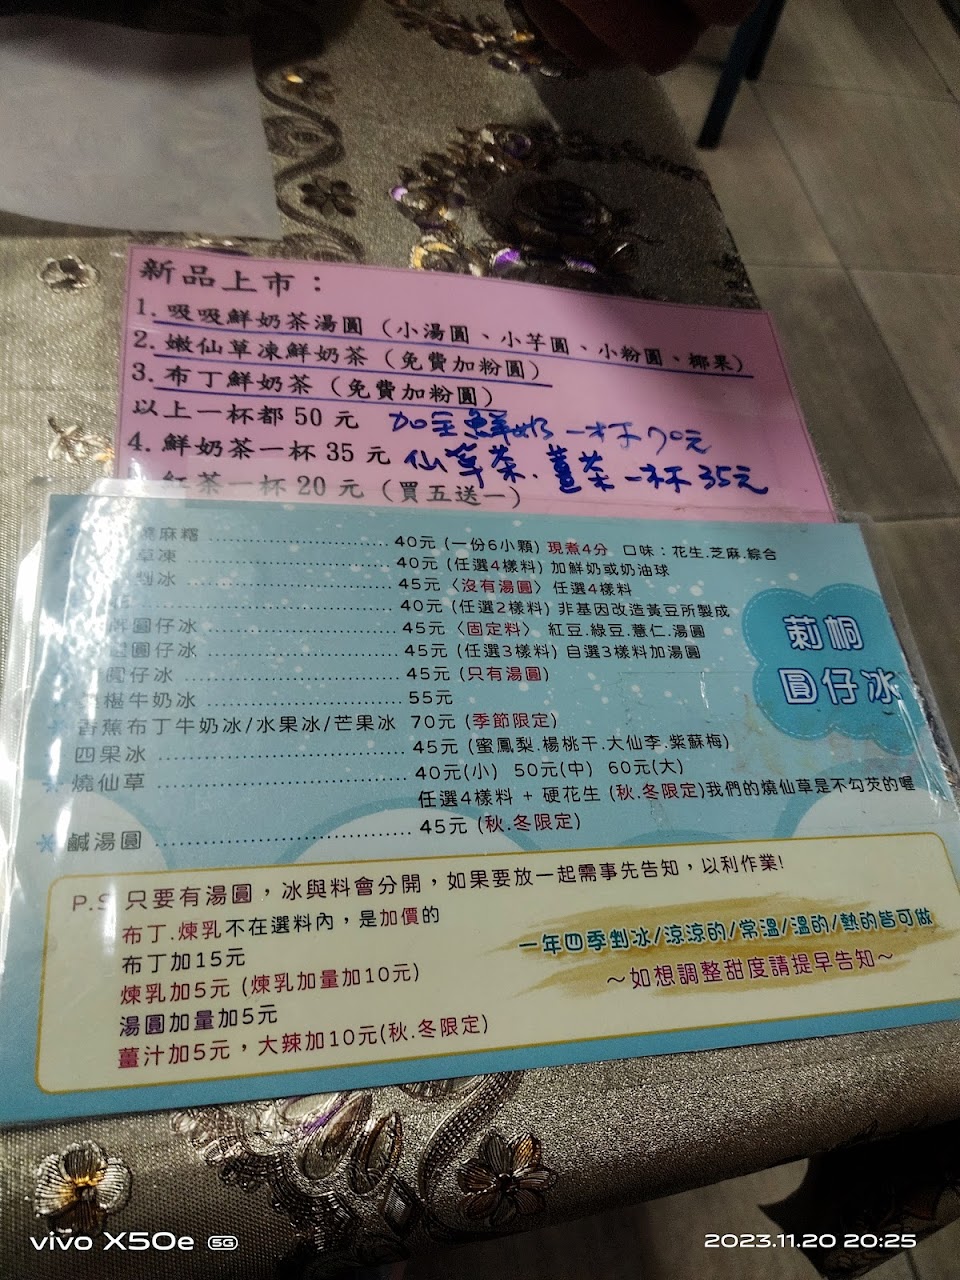 新品上市：
1. 吸吸鮮奶茶湯圓（小湯圓、小芋圓、小粉圓、椰果）
2. 嫩仙草凍鮮奶茶（免費加粉圓）
3. 布丁鮮奶茶（免費加粉圓）
以上一杯都 50 元 加全鮮奶一杯70元
4. 鮮奶茶一杯 35 元 仙草茶.薑茶一杯35元
紅茶一杯 20 元（買五送一）
燒麻糬 40元 (一份6小顆) 現煮4分 口味：花生.芝麻.綜合
草凍 40元 (任選4樣料) 加鮮奶或奶油球
剉冰 45元〈沒有湯圓〉任選4樣料
40元 (任選2樣料) 非基因改造黃豆所製成
圓仔冰 45元〈固定料〉 紅豆.綠豆.薏仁.湯圓
圓仔冰 45元 (任選3樣料) 自選3樣料加湯圓
圓仔冰 45元 (只有湯圓)
椹牛奶冰 55元
香蕉布丁牛奶冰/水果冰/芒果冰 70元 (季節限定)
四果冰 45元 (蜜鳳梨.楊桃干.大仙李.紫蘇梅)
燒仙草 40元(小) 50元(中) 60元(大)
任選4樣料 + 硬花生 (秋.冬限定)我們的燒仙草是不勾芡的喔
鹹湯圓 45元 (秋.冬限定)
莿桐
圓仔冰
P.S 只要有湯圓，冰與料會分開，如果要放一起需事先告知，以利作業!
布丁.煉乳不在選料內，是加價的
布丁加15元
煉乳加5元 (煉乳加量加10元)
湯圓加量加5元
薑汁加5元，大辣加10元(秋.冬限定)
一年四季剉冰/涼涼的/常溫/溫的/熱的皆可做
～如想調整甜度請提早告知～
vivo X50e 5G
2023.11.20 20:25